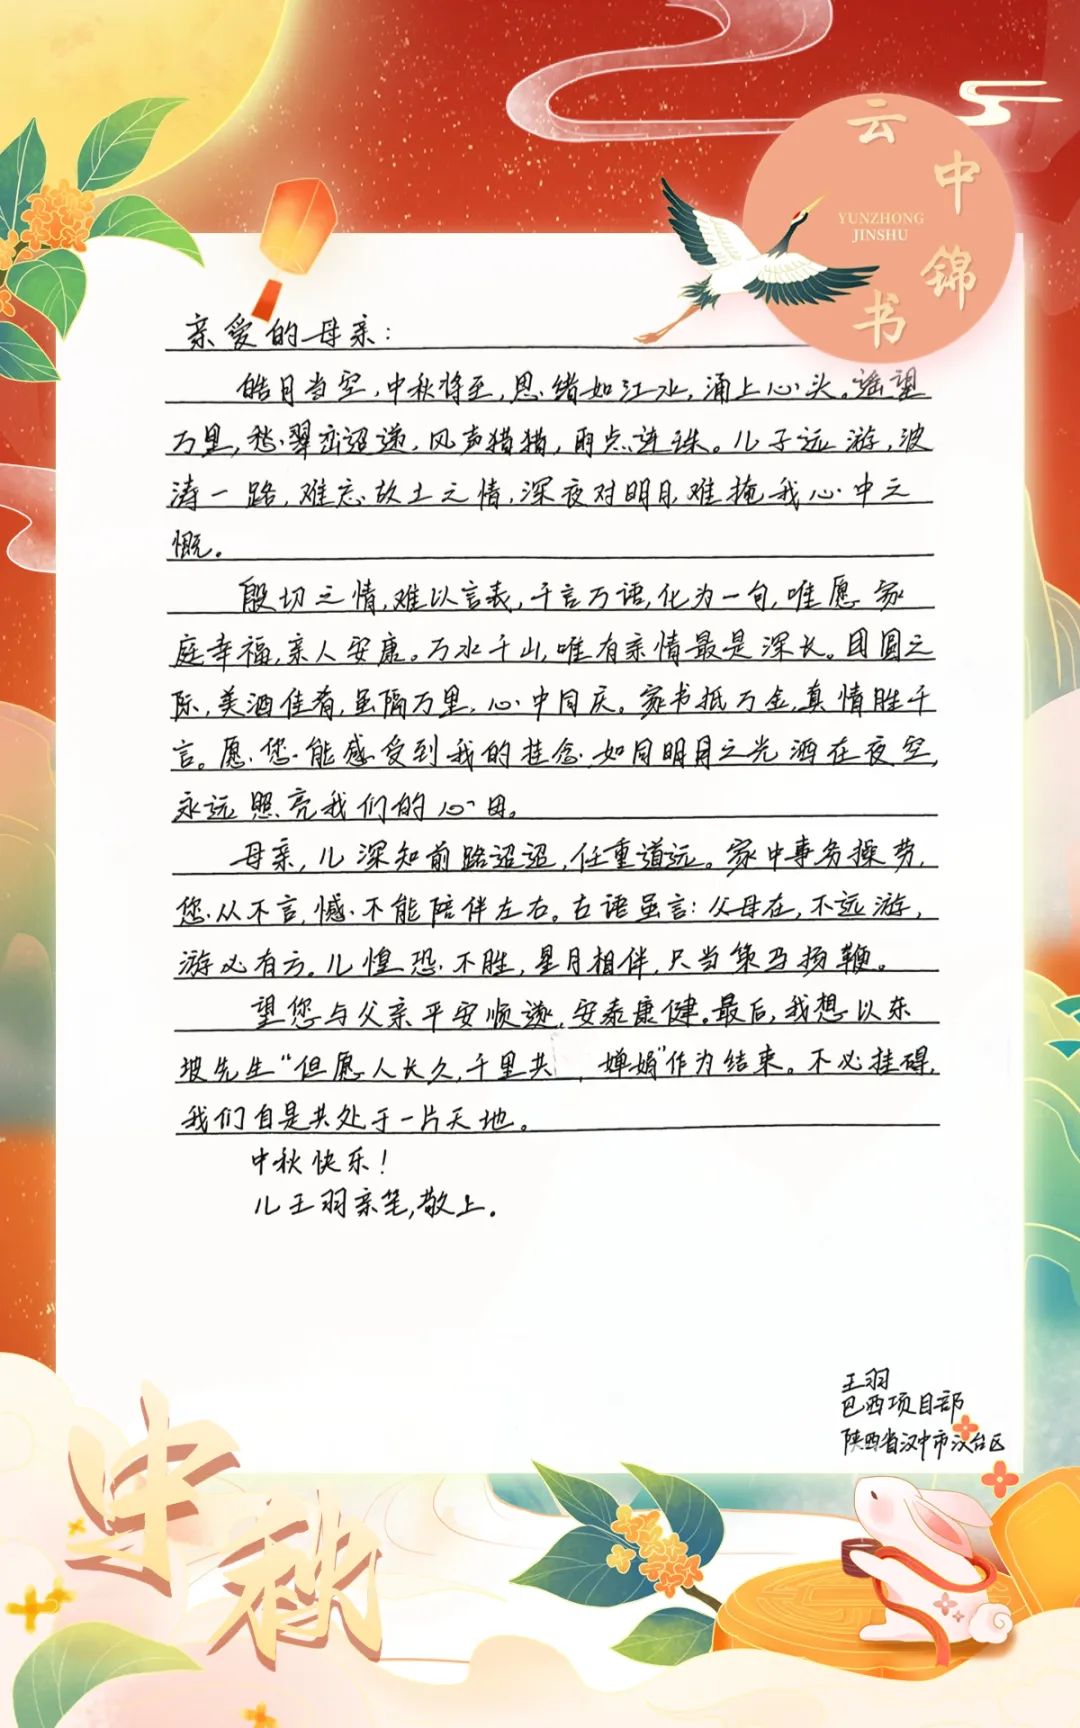 云中锦书
YUNZHONG
JINSHU
亲爱的母亲：
皓月当空，中秋将至，思绪如江水，涌上心头。遥望
万里，愁翠峦迢递，风声猎猎，雨点连珠。儿子远游，波
涛一路，难忘故土之情，深夜对明月难掩我心中之
慨。
殷切之情，难以言表，千言万语，化为一句，唯愿家
庭幸福，亲人安康。万水千山，唯有亲情最是深长。团圆之
际，美酒佳肴，虽隔万里，心中同庆。家书抵万金，真情胜千
言。愿您能感受到我的挂念，如同明月之光洒在夜空，
永远照亮我们的心田。
母亲，儿深知前路迢迢，任重道远。家中事务操劳，
您从不言，憾不能陪伴左右。古语虽言：父母在，不远游，
游必有方。儿惶恐不胜，星月相伴，只当策马扬鞭。
望您与父亲平安顺遂，安泰康健。最后，我想以东
坡先生“但愿人长久，千里共，婵娟”作为结束。不必挂碍，
我们自是共处于一片天地。
中秋快乐！
儿王羽亲笔，敬上。
王羽
巴西项目部
陕西省汉中市汉台区
中秋